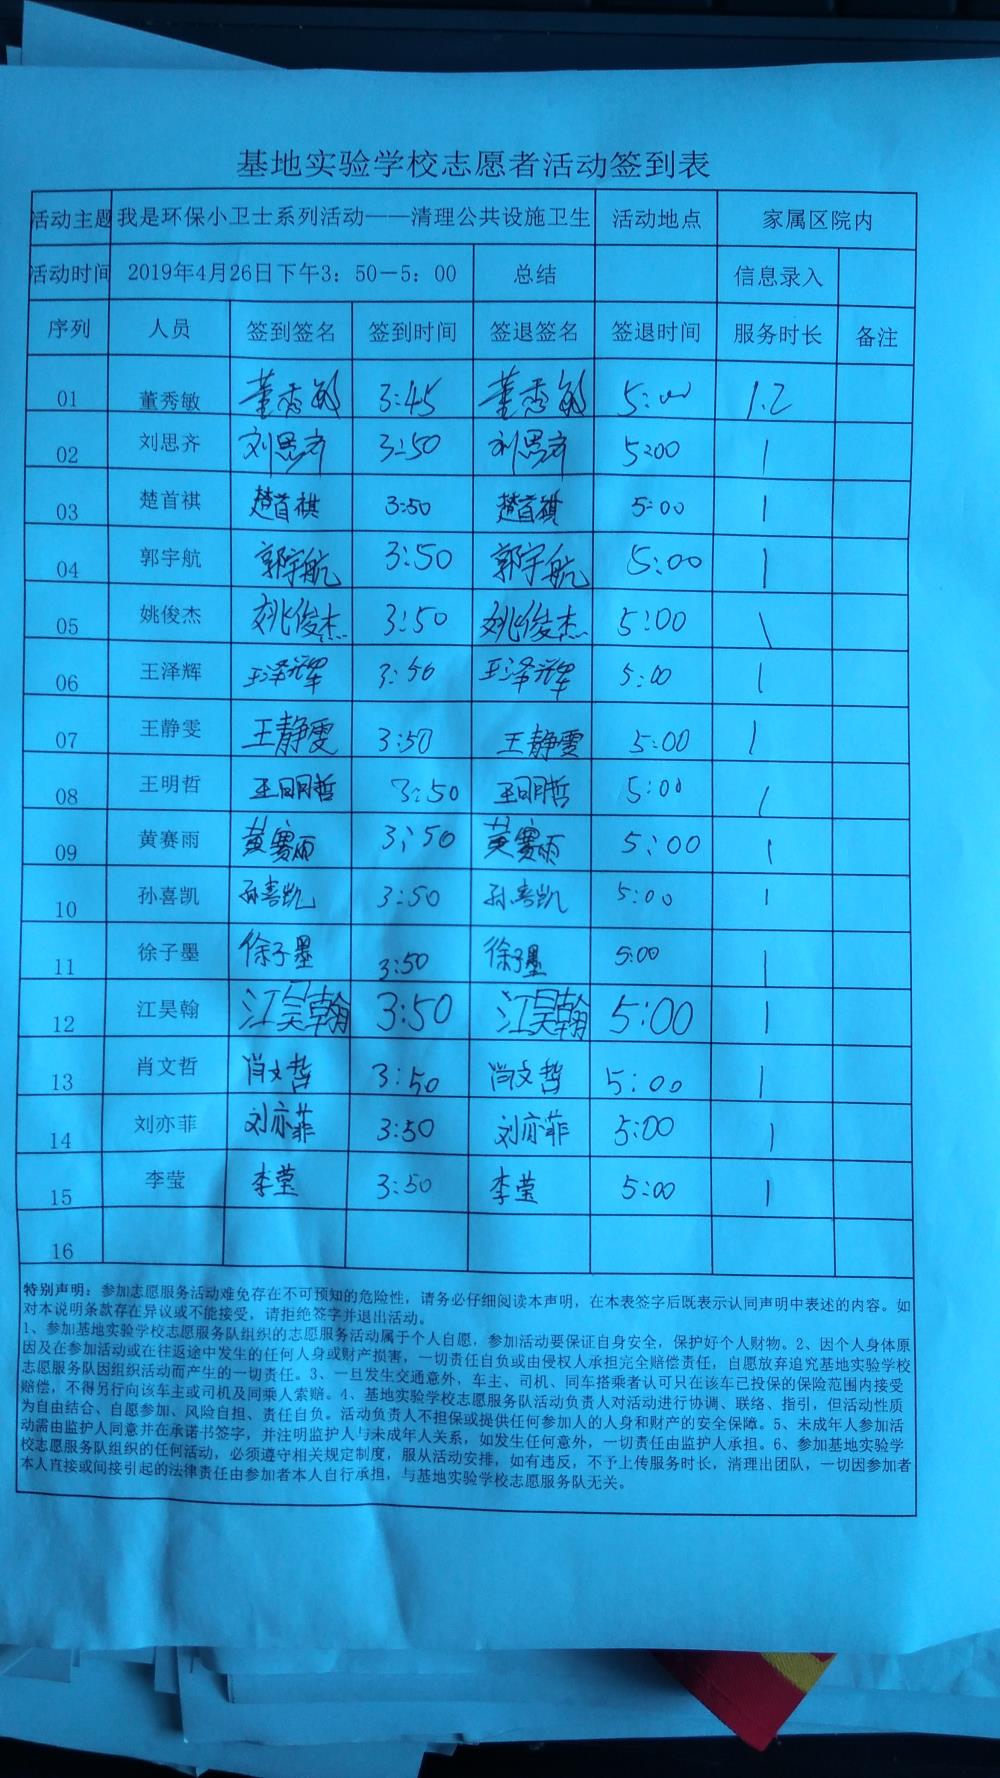 基地实验学校志愿者活动签到表
活动主题 我是环保小卫士系列活动——清理公共设施卫生 活动地点 家属区院内
活动时间 2019年4月26日下午3：50－5：00 总结 信息录入
序列 人员 签到签名 签到时间 签退签名 签退时间 服务时长 备注
01 董秀敏 董秀敏 3:45 董秀敏 5:00 1.2
02 刘思齐 刘思齐 3:50 刘思齐 5:00 1
03 楚首祺 楚首祺 3:50 楚首祺 5:00 1
04 郭宇航 郭宇航 3:50 郭宇航 5:00 1
05 姚俊杰 姚俊杰 3:50 姚俊杰 5:00 1
06 王泽辉 王泽辉 3:50 王泽辉 5:00 1
07 王静雯 王静雯 3:50 王静雯 5:00 1
08 王明哲 王明哲 3:50 王明哲 5:00 1
09 黄赛雨 黄赛雨 3:50 黄赛雨 5:00 1
10 孙喜凯 孙喜凯 3:50 孙喜凯 5:00 1
11 徐子墨 徐子墨 3:50 徐子墨 5:00 1
12 江昊翰 江昊翰 3:50 江昊翰 5:00 1
13 肖文哲 肖文哲 3:50 肖文哲 5:00 1
14 刘亦菲 刘亦菲 3:50 刘亦菲 5:00 1
15 李莹 李莹 3:50 李莹 5:00 1
16
特别声明：参加志愿服务活动难免存在不可预知的危险性，请务必仔细阅读本声明，在本表签字后既表示认同声明中表述的内容。如
对本说明条款存在异议或不能接受，请拒绝签字并退出活动。
1、参加基地实验学校志愿服务队组织的志愿服务活动属于个人自愿，参加活动要保证自身安全，保护好个人财物。2、因个人身体原
因及在参加活动或在往返途中发生的任何人身或财产损害，一切责任自负或由侵权人承担完全赔偿责任，自愿放弃追究基地实验学校
志愿服务队因组织活动而产生的一切责任。3、一旦发生交通意外，车主、司机、同车搭乘者认可只在该车已投保的保险范围内接受
赔偿，不得另行向该车主或司机及同乘人索赔。4、基地实验学校志愿服务队活动负责人对活动进行协调、联络、指引，但活动性质
为自由结合、自愿参加、风险自担、责任自负。活动负责人不担保或提供任何参加人的人身和财产的安全保障。5、未成年人参加活
动需由监护人同意并在承诺书签字，并注明监护人与未成年人关系，如发生任何意外，一切责任由监护人承担。6、参加基地实验学
校志愿服务队组织的任何活动，必须遵守相关规定制度，服从活动安排，如有违反，不予上传服务时长，清理出团队，一切因参加者
本人直接或间接引起的法律责任由参加者本人自行承担，与基地实验学校志愿服务队无关。